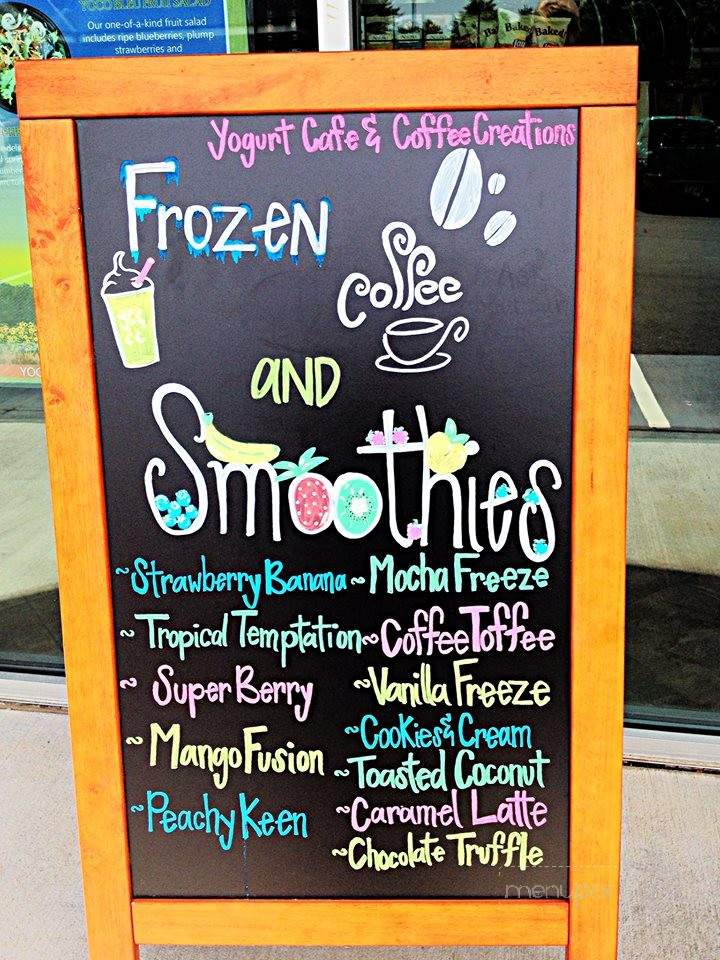 YOCO BLEU FRUIT SALAD
Our one-of-a-kind fruit salad
includes ripe blueberries, plump
strawberries and
Baked
Baked
Yogurt Cafe & Coffee Creations
Frozen
Coffee
AND
Smoothies
~Strawberry Banana
~Tropical Temptation
~Super Berry
~Mango Fusion
~Peachy Keen
~Mocha Freeze
~Coffee Toffee
~Vanilla Freeze
~Cookies & Cream
~Toasted Coconut
~Caramel Latte
~Chocolate Truffle